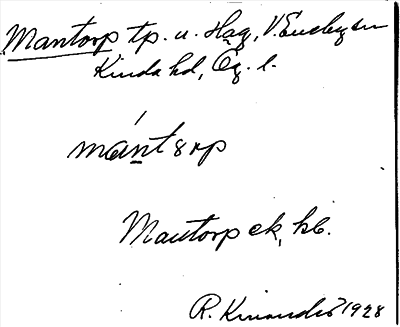 Mantorp tp. u. Hag, V. Eneby sn
Kinda hd, Ög. l.
mántərp
Mantorp ek, hb.
R. Kinander 1928